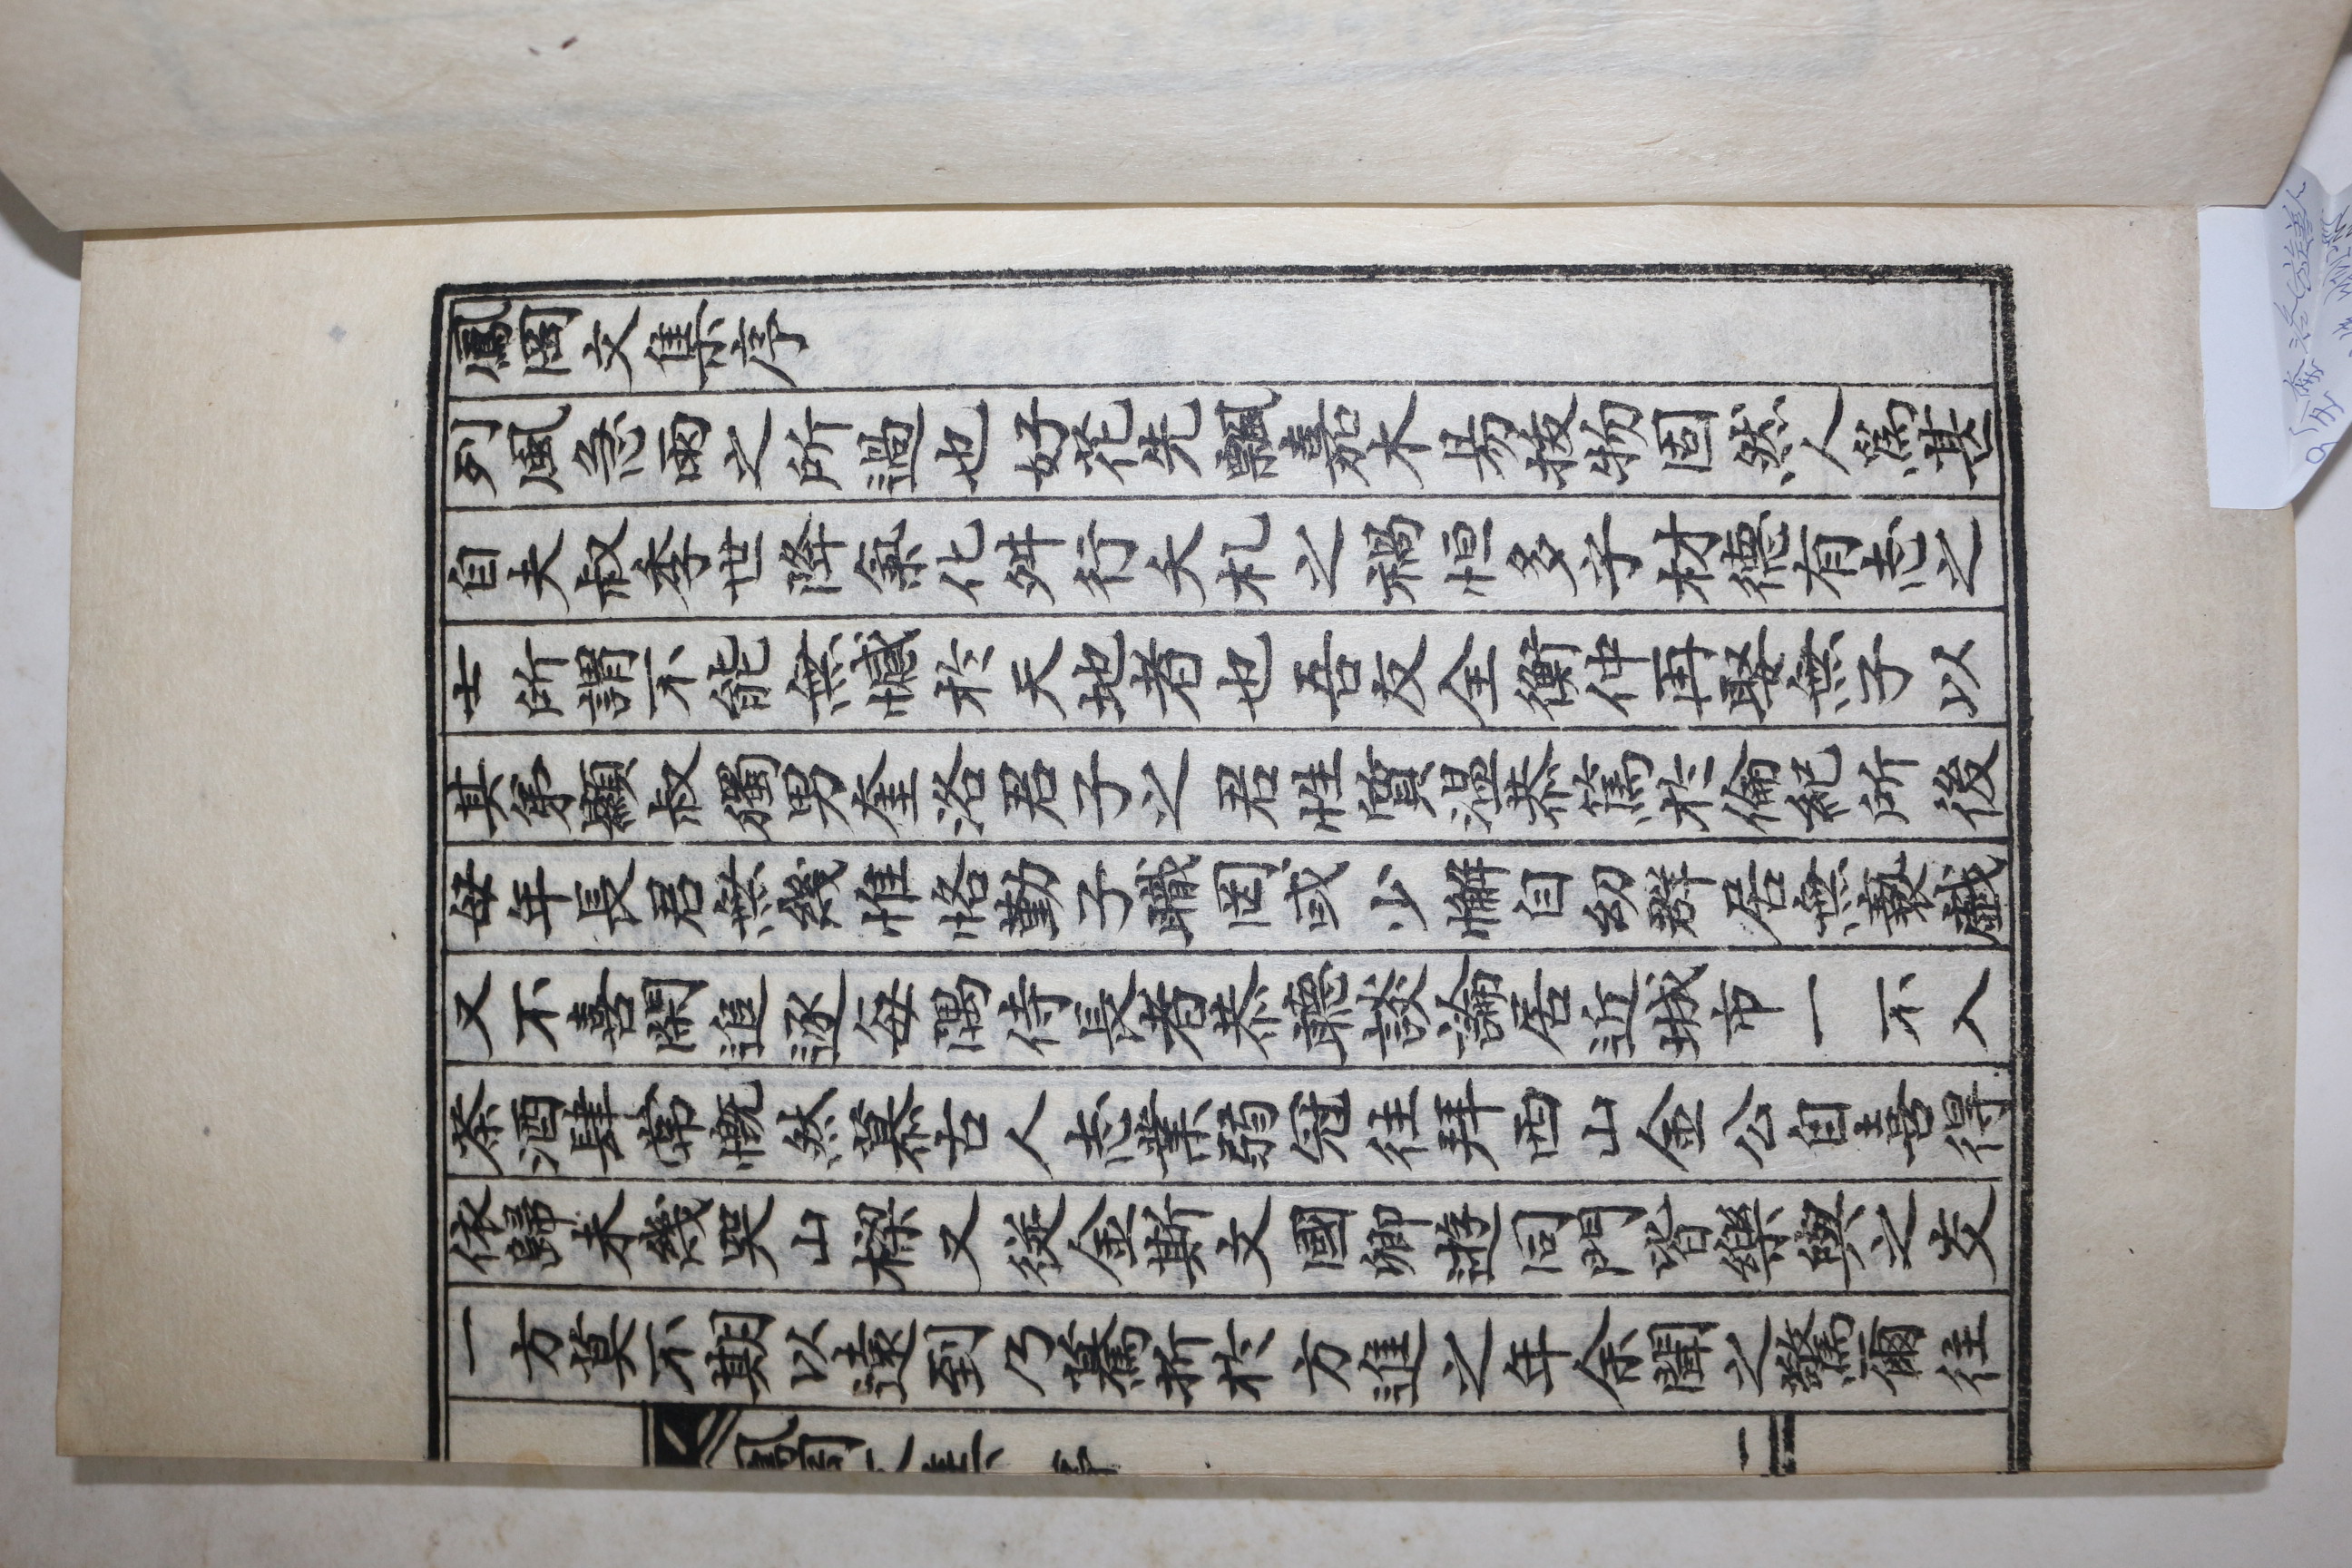 鳳岡文集序
列風急雨之所過也好花先飄嘉木易拔物固然人爲甚
自夫叔季世降氣化舛行夭札之禍恒多字材德有志之
士所謂不能無憾於天地者也吾友全衡仲再娶無子以
其弟顯叔獨男奎洛君子之君性質溫恭篤於倫紀所後
母年長君無幾惟恪勤子職罔或少懈自幼群居無褻戲
又不喜閑追逐每隅侍長者恭聽談論居近城市一不入
茶酒肆常慨然慕古人志業弱冠往拜西山金公自喜得
依歸未幾哭山樑又從金斯文國卿遊同門皆樂與之交
一方莫不期以遠到乃驀折於方進之年余聞之驚爾往
二